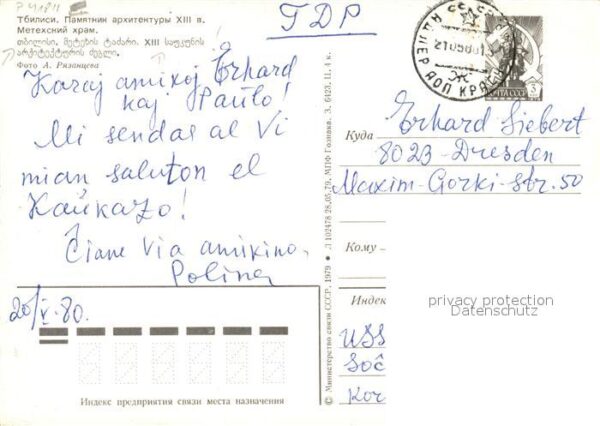 P 41811
Тбилиси. Памятник архитектуры XIII в.
Метехский храм.
თბილისი. მეტეხის ტაძარი. XIII საუკუნის
არქიტექტურის ძეგლი.
Фото А. Рязанцева
ГДР
Karaj amikoj Erhard
kaj Paulo!
Mi sendas al Vi
mian saluton el
Kaŭkazo!
Ĉiam Via amikino.
Polina
20/V.80.
Л 102478 28.05.79. МПФ Гознака. З. 6423. Ц. 4 к.
© Министерство связи СССР, 1979
ПОЧТА СССР
3
Куда Erhard Siebert
8023-Dresden
Maxim-Gorki-Str. 50
Кому
Индек
USS
Soĉ
Kor
privacy protection
Datenschutz
Индекс предприятия связи места назначения